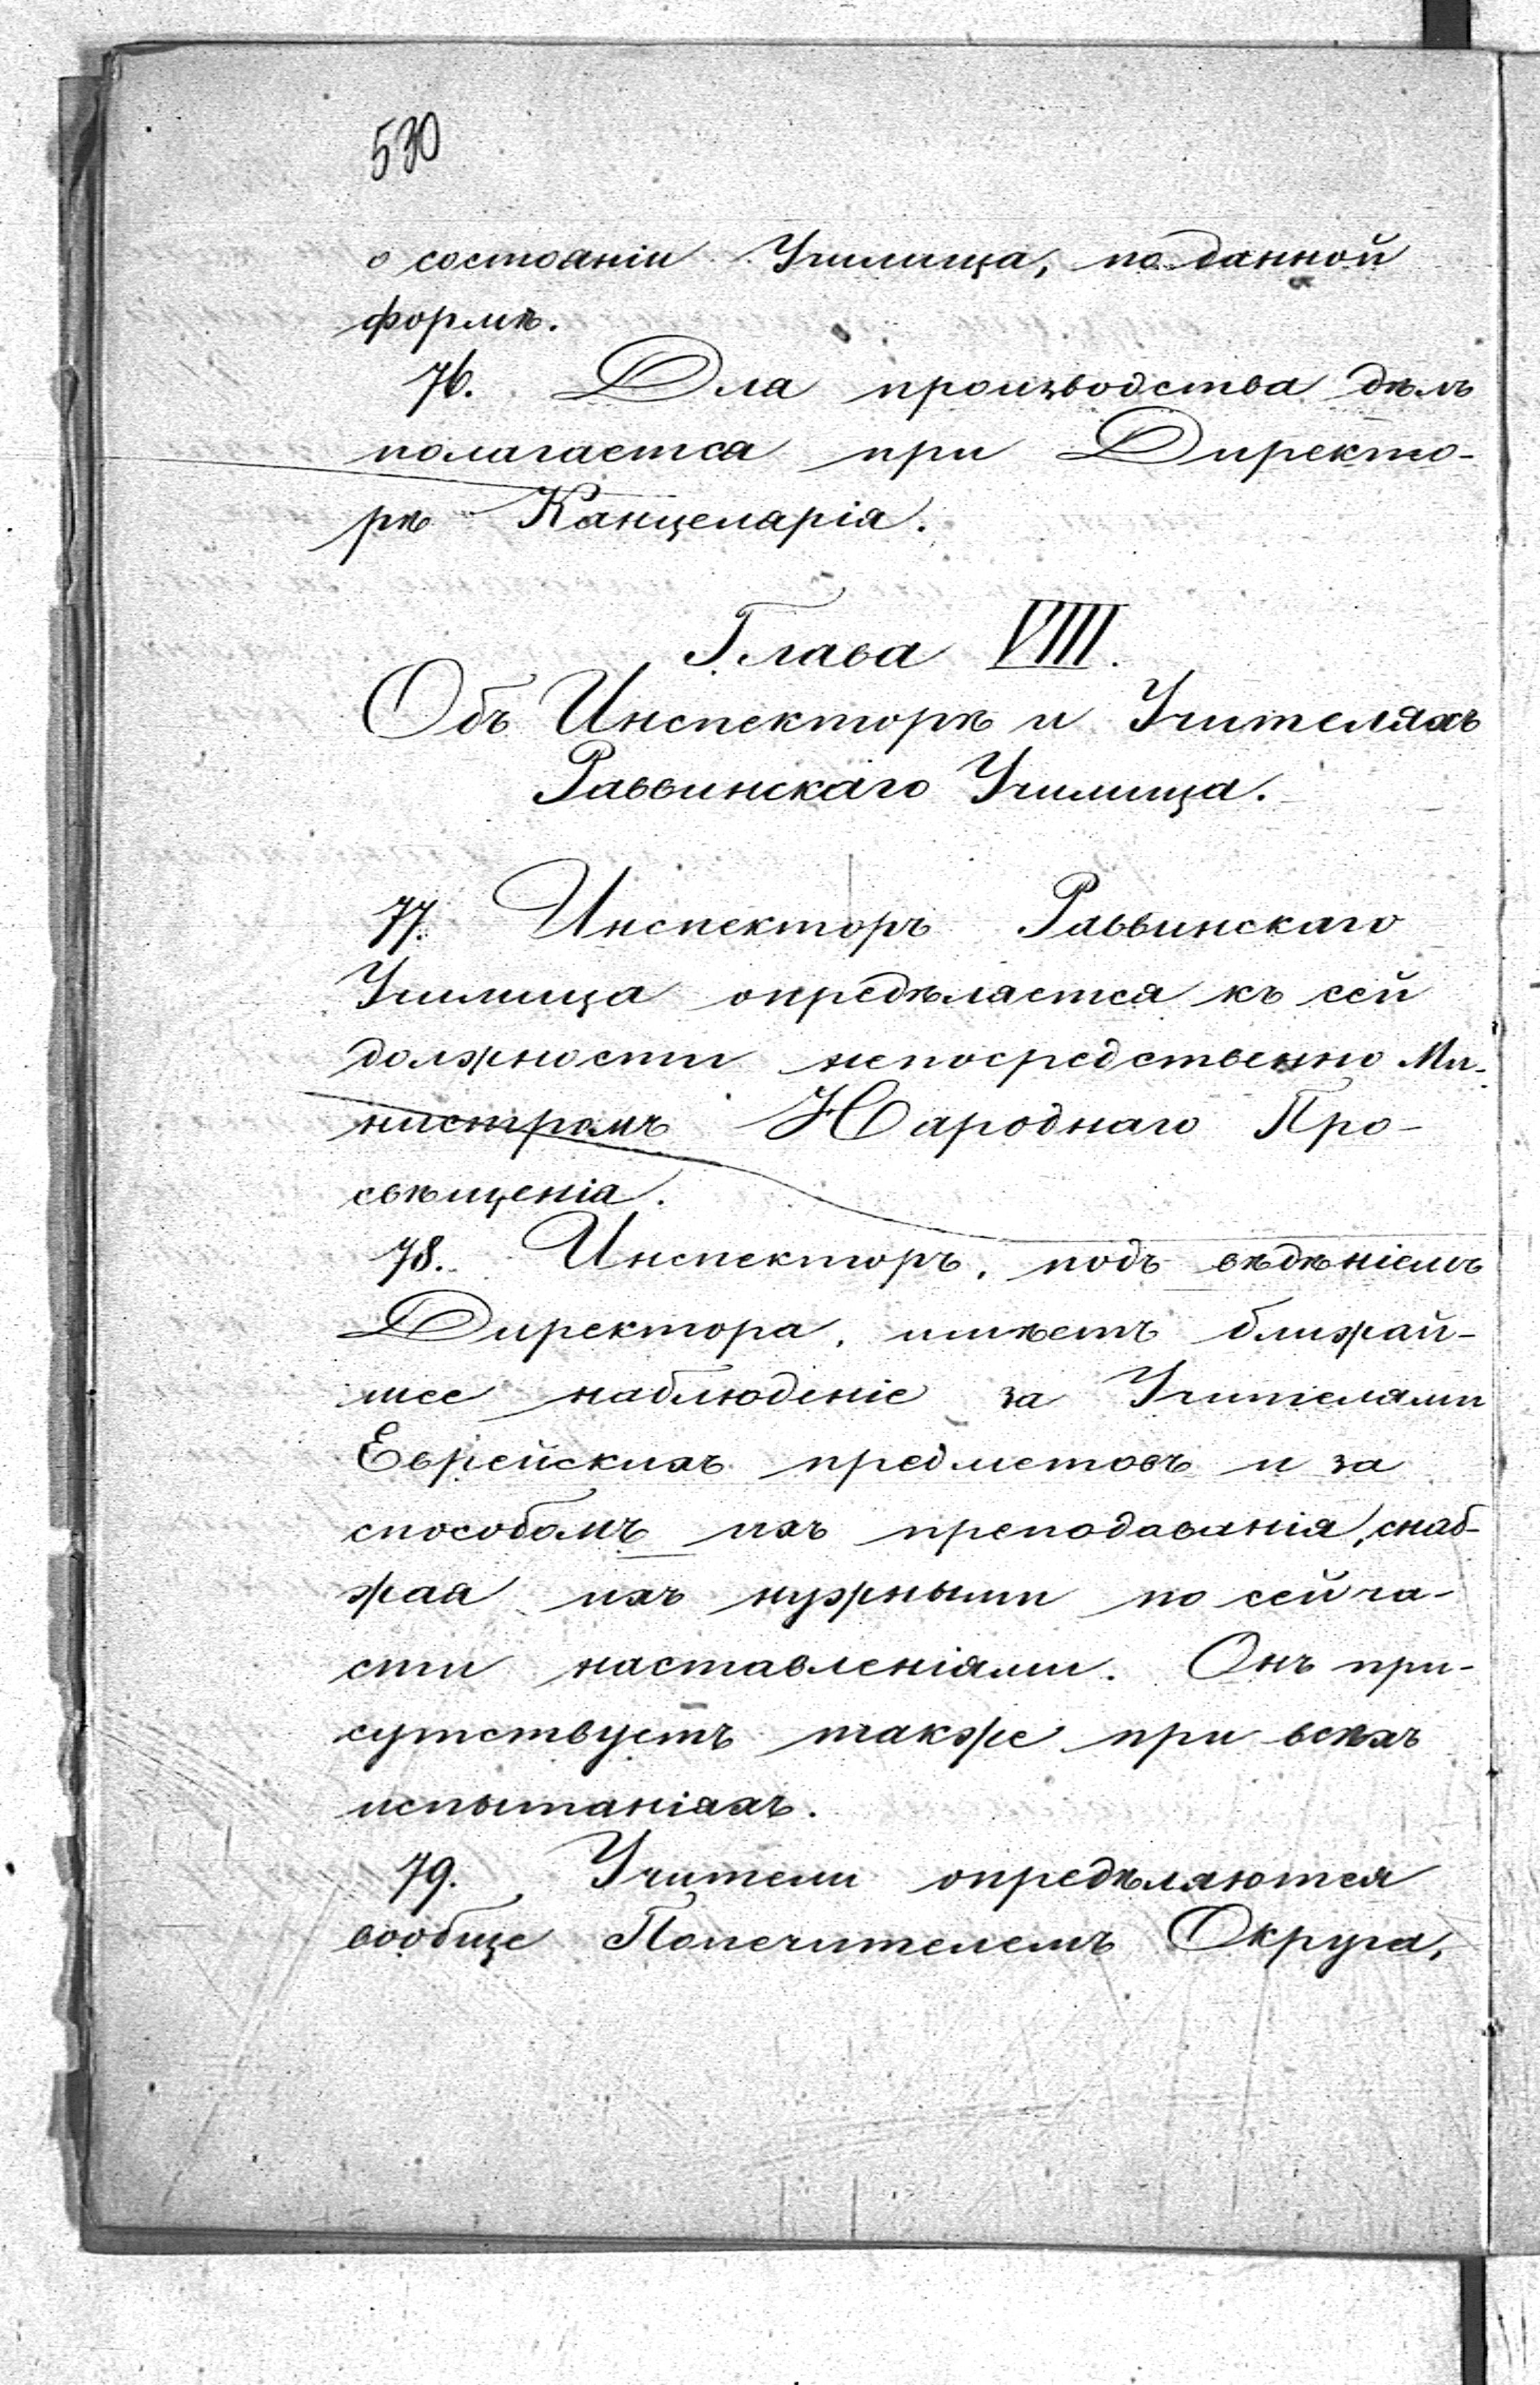 530
о состояніи Училища, по данной
формѣ.
76. Для производства дѣлъ
полагается при Директо-
рѣ Канцелярія.
Глава VIII.
Объ Инспекторѣ и Учителяхъ
Раввинскаго Училища.
77. Инспекторъ Раввинскаго
Училища опредѣляется къ сей
должности непосредственно Ми-
нистромъ Народнаго Про-
свѣщенія.
78. Инспекторъ, подъ вѣдѣніемъ
Директора, имѣетъ ближай-
шее наблюденіе за Учителями
Еврейскихъ предметовъ и за
способомъ ихъ преподаванія, снаб-
жая ихъ нужными по сей ча-
сти наставленіями. Онъ при-
сутствуетъ также при всѣхъ
испытаніяхъ.
79. Учители опредѣляются
вообще Попечителемъ Округа,